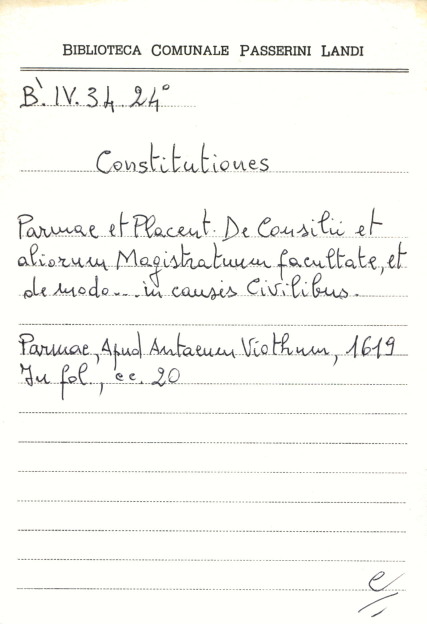 BIBLIOTECA COMUNALE PASSERINI LANDI
B`. IV. 34. 24°
Constitutiones
Parmae et Placent. De Consilii et
aliorum Magistratuum facultate, et
de modo... in causis Civilibus.
Parmae, Apud Antaeum Viothum, 1619
In fol., cc. 20
e